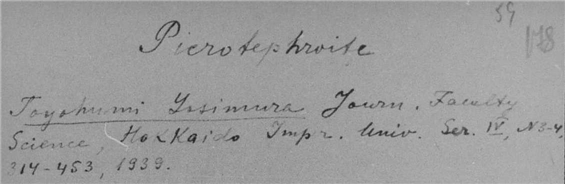 59
178
Picrotephroite
Toyohumi Yosimura Journ. Faculty
Science, Hokkaido Impr. Univ. Ser. IV, N3-4,
314-453, 1939.